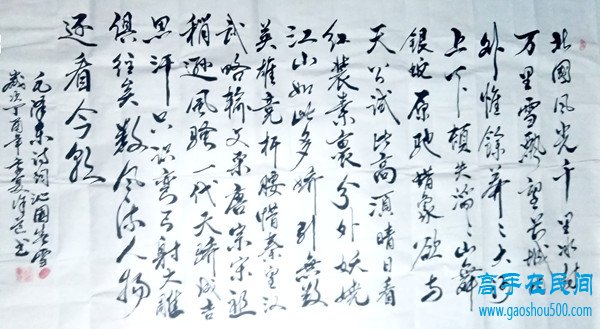 北國风光千里冰封
万里雪飘望长城
外惟餘莽々大河
上下頓失滔々山舞
银蛇原驰蜡象欲与
天公试比高须晴日看
红装素裹分外妖娆
江山如此多娇引無数
英雄竞折腰惜秦皇汉
武略输文采唐宗宋祖
稍逊风骚一代天骄成吉
思汗只识弯弓射大雕
俱往矣数风流人物
还看今朝
毛泽东诗词沁园春雪
岁次丁酉年
书
高手在民间
www.gaoshou500.com